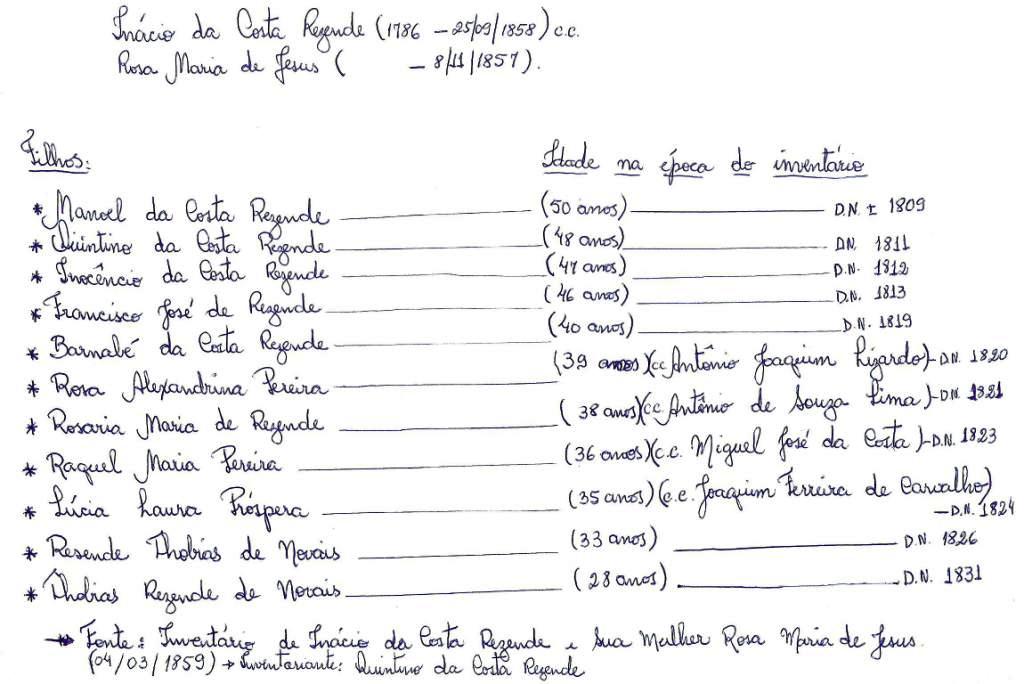 Inácio da Costa Rezende (1786 – 25/09/1858) c.c.
Rosa Maria de Jesus ( – 8/11/1857).
Filhos: Idade na época do inventário
* Manoel da Costa Rezende (50 anos) D.N. ± 1809
* Quintino da Costa Rezende (48 anos) DN. 1811
* Inocêncio da Costa Rezende (47 anos) D.N. 1812
* Francisco José de Rezende (46 anos) D.N. 1813
* Barnabé da Costa Rezende (40 anos) D.N. 1819
* Rosa Alexandrina Pereira (39 anos)(cc Antônio Joaquim Lizardo) – DN. 1820
* Rosaria Maria de Rezende (38 anos)(cc. Antônio de Souza Lima) – DN. 1821
* Raquel Maria Pereira (36 anos)(c.c. Miguel José da Costa) – D.N. 1823
* Lúcia Laura Próspera (35 anos) (c.c. Joaquim Ferreira de Carvalho)
– D.N. 1824
* Resende Thobias de Novais (33 anos) D.N. 1826
* Thobias Rezende de Novais (28 anos) D.N. 1831
→ Fonte: Inventário de Inácio da Costa Rezende e sua Mulher Rosa Maria de Jesus.
(04/03/1859) → Inventariante: Quintino da Costa Rezende